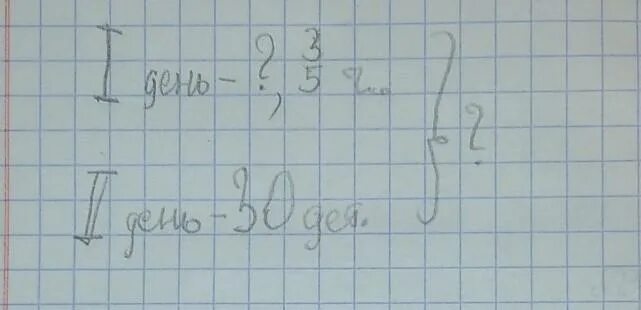 I день - ?, 3/5 ч.
II день - 30 дет.
?